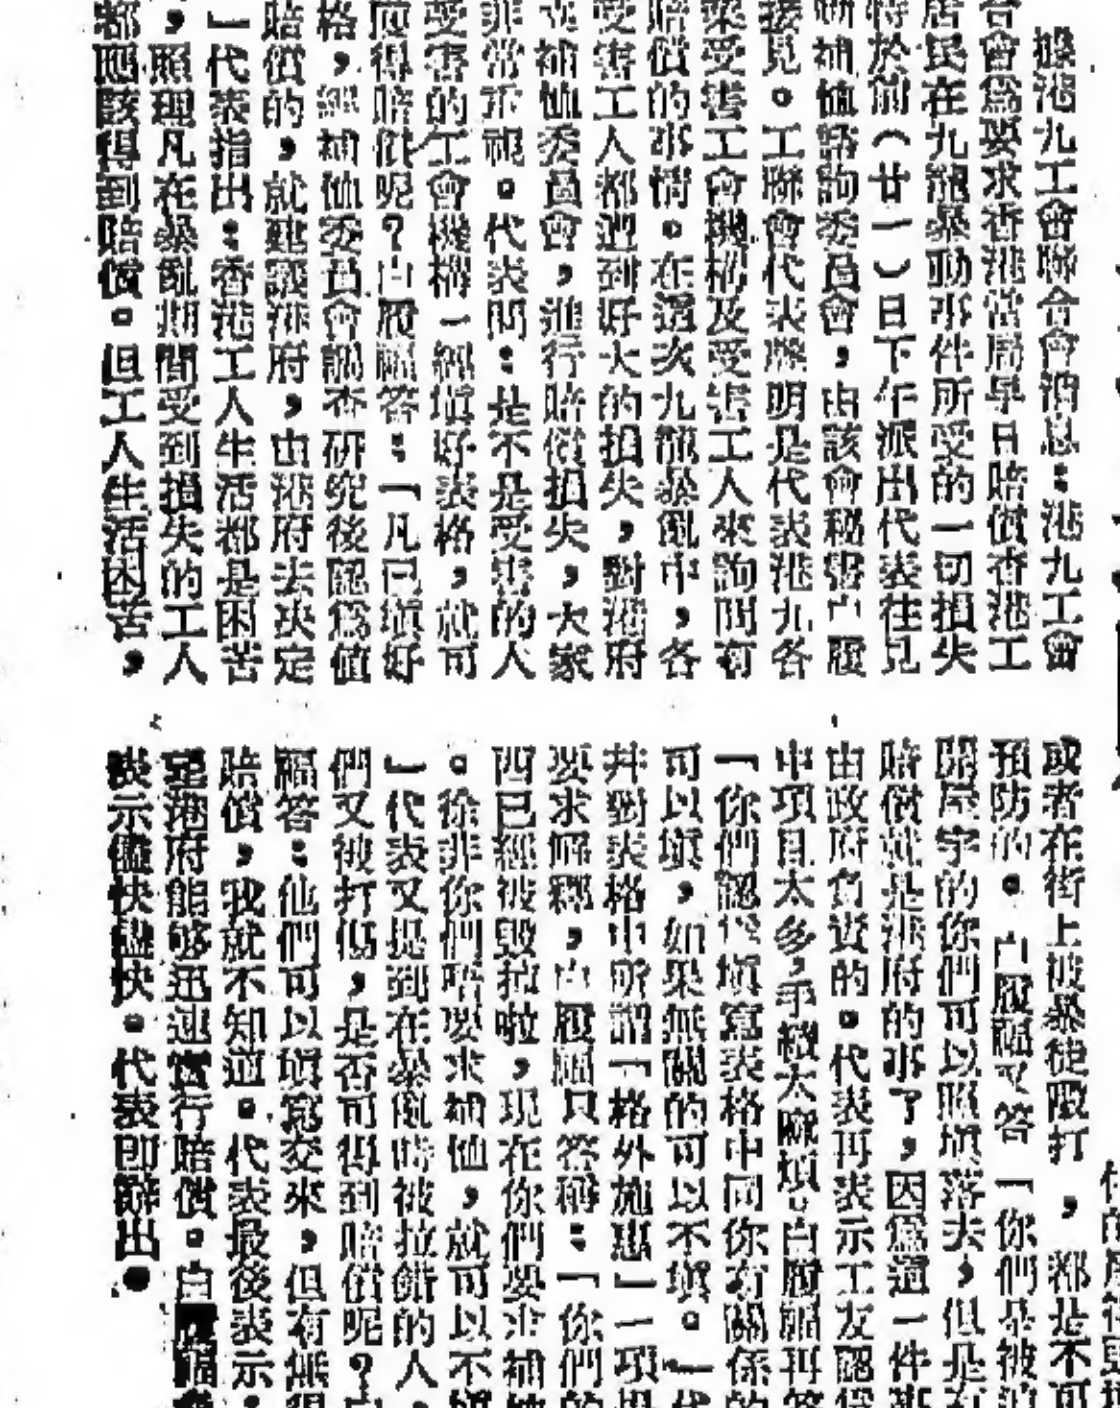 據港九工會聯合會消息：港九工會
合會爲要求香港當局早日賠償香港工
居民在九龍暴動事件所受的一切損失
特於前（廿一）日下午派出代表往見
補恤諮詢委員會，由該會秘書白履
接見。工聯會代表聲明是代表港九各
業受害工會機構及受害工人來詢問有
賠償的事情。在這次九龍暴亂中，各
受害工人都遭到好大的損失，對港府
立補恤委員會，進行賠償損失，大家
非常重視。代表問：是不是受害的人
受害的工會機構一經塡好表格，就可
獲得賠償呢？白履福答：「凡已塡好
格，經補恤委員會調查研究後認爲值
賠償的，就建議港府，由港府去決定
」代表指出：香港工人生活都是困苦
，照理凡在暴亂期間受到損失的工人
都應該得到賠償。但工人生活困苦，
或者在街上被暴徒毆打，都是不可
預防的。白履福又答「你們是被
開屋宇的你們可以照塡落去，但是
賠償就是港府的事了，因爲這一件
由政府負責的。代表再表示工友認
中項目太多，手續太嚹塡。白履福再答
「你們認爲塡寫表格中同你有關係的
可以塡，如果無關的可以不塡。」代
并對表格中所謂「格外施惠」一項
要求解釋，白履福只答稱：「你們的
四已經被毀拉啦，現在你們要求補
。徐非你們唔要求補恤，就可以不塡
」代表又提到在暴亂時被拉錯的人，
們又被打傷，是否可得到賠償呢？白
福答：他們可以塡寫交來，但有無得
賠償，我就不知道。代表最後表示：
望港府能够迅速實行賠償。白履福
表示儘快儘快。代表即辭出。